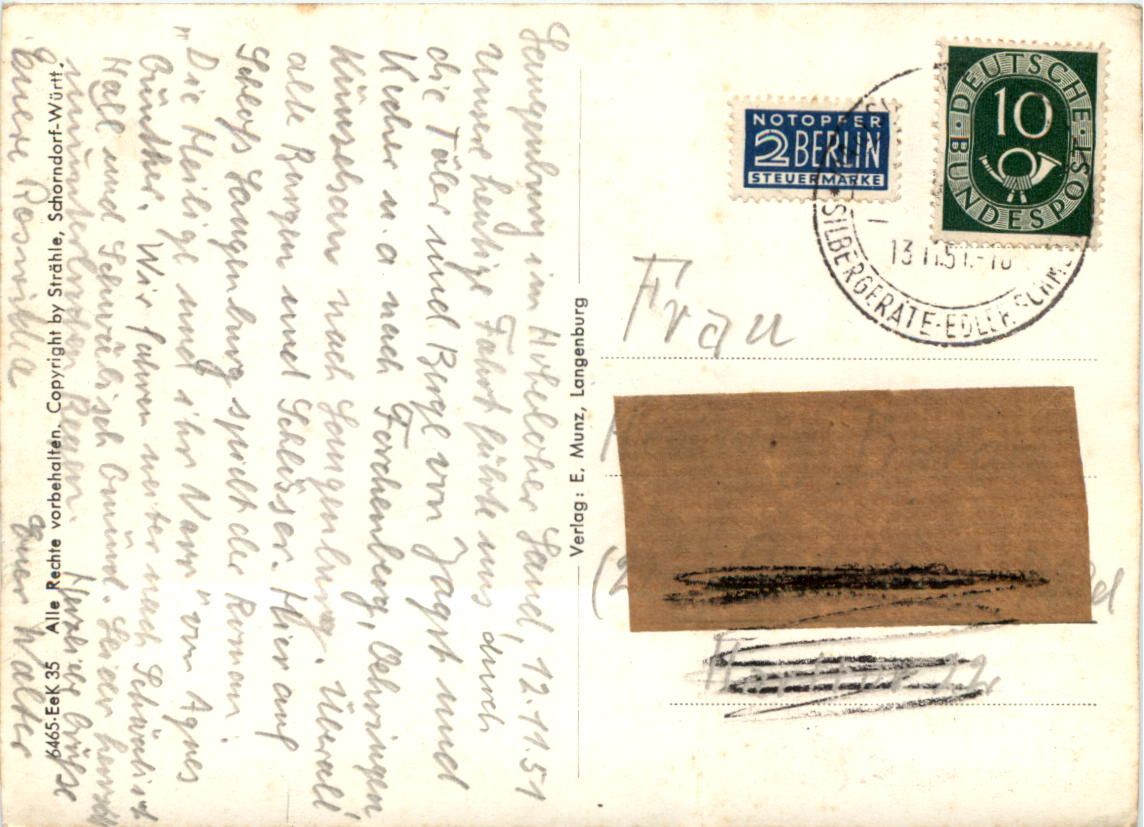 Langenburg im Hoheloher Land, 12.11.51
Unsere heutige Fahrt führte uns durch
die Täler und Berge von Jagst und
Kocher u. a nach Forchenberg, Oehringen,
Künzelsau nach Langenburg. Überall
alte Burgen und Schlösser. Hier auf
Schloß Langenburg spielt der Roman
"Die Heilige und ihr Narr" von Agnes
Günther. Wir fahren weiter nach Schwäbisch
Hall und Schwäbisch Gmünd. Leider herrscht
ununterbrochen Regen. Herzliche Grüße
Euer Walter
Eure Roswitha
6465-EeK 35 Alle Rechte vorbehalten. Copyright by Strähle, Schorndorf-Württ.
Verlag: E. Munz, Langenburg
NOTOPFER
2 BERLIN
STEUERMARKE
DEUTSCHE
10
BUNDESPOST
13 11.51.-10
SILBERGERÄTE·EDLER SCHM
Frau